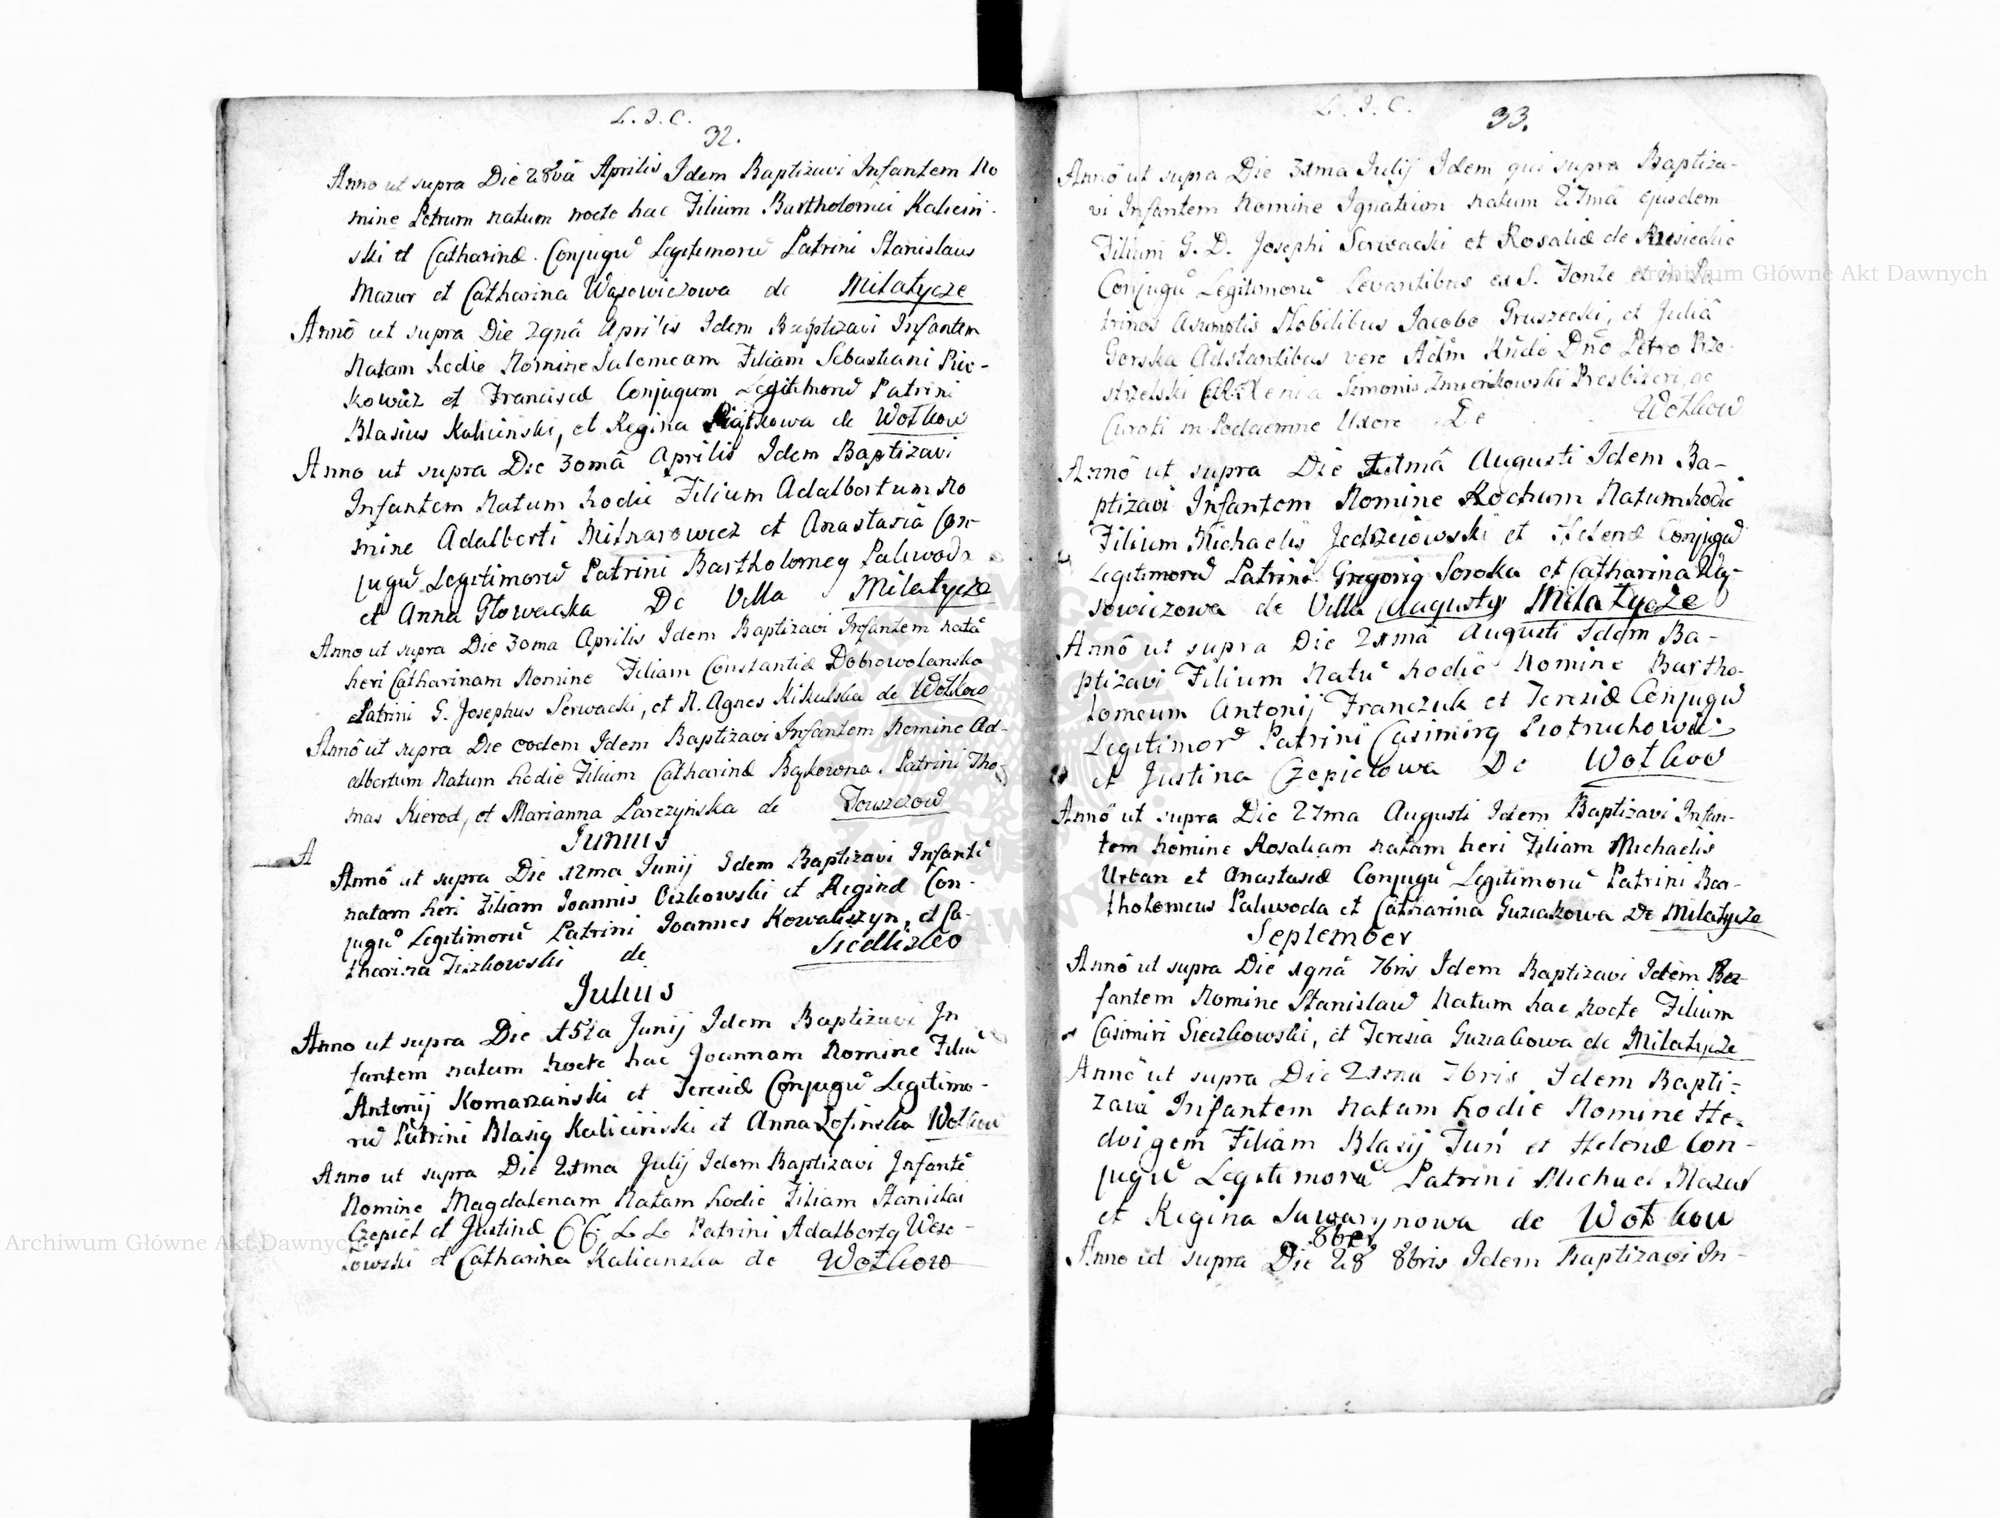 L. J. C.
32.
Anno ut supra Die 28vâ Aprilis Idem Baptizavi Infantem No
mine Petrum natum nocte hac Filium Bartholomei Kalicin-
ski et Catharinæ Conjugũ Legitimorũ Patrini Stanislaus
Mazur et Catharina Wąsowiczowa de Milatycze
Annô ut supra Die 29nâ Aprilis Idem Baptizavi Infantem
Natam hodie Nomine Salomeam Filiam Sebastiani
et Franciscæ Conjugum Legitimorũ Patrini
Blasius Kaliciński, et Regina Piątkowa de Wołkow
Anno ut supra Die 30mâ Aprilis Idem Baptizavi
Infantem Natum hodie Filium Adalbertum No
mine Adalberti Mitnarowicz et Anastasiâ Con-
jugũ Legitimorũ Patrini Bartholomeg Paliwoda
et Anna Głowacka De Villa Milatycze
Anno ut supra Die 30ma Aprilis Idem Baptizavi Infantem natã
heri Catharinam Nomine Filiam Constantiæ Dobrowolanska
Patrini G. Josephus Serwacki, et N. Agnes Kikulska de Wołkow
Annô ut supra Die eodem Idem Baptizavi Infantem Nomine Ad-
albertum Natum hodie Filium Catharinæ Bąkowna. Patrini Tho-
mas Kierod, et Marianna Parczyńska de Touszczow
Junius
A
Annô ut supra Die 12ma Junij Idem Baptizavi Infantẽ
natam heri Filiam Joannis Ciszkowski et Reginæ Con-
jugũ Legitimorũ Patrini Joannes Kowaliszyn, et Ca-
tharina de Siedlisko
Julius
Anno ut supra Die 15ta Junij Idem Baptizavi In
fantem natum nocte hac Joannam Nomine Filiũ
Antonij Komarzański et Teresiæ Conjugũ Legitimo-
rũ Patrini Blasig Kaliciński et Anna Zofinska Wołkow
Anno ut supra Die 21ma Julij Idem Baptizavi Infantẽ
Nomine Magdalenam Natam hodie Filiam Stanislai
Czepiel et Justinæ CC. LL Patrini Adalbertg Weso-
łowski et Catharina Kalicinska de Wołkow
L. J. C.
33.
Annô ut supra Die 31ma Julij Idem qui supra Baptiza-
vi Infantem Nomine Ignatium natum 27mâ ejusdem
Filium G. D. Josephi Serwacki et Rosaliæ de
Conjugũ Legitimorũ Levantibus ex S. Fonte et in Pa-
trinos Asumptis Nobilibus Jacobo Gruszecki, et Juliâ
Gorska Adstantibus vero Adm Rndo Dno Petro Prze-
strzelski Simonis Zmienkowski Presbiteri, ac
Curati in Podciemne Uxore De Wołkow
Annô ut supra Die 1mâ Augusti Idem Ba-
ptizavi Infantem Nomine Rochum Natum hodie
Filium Michaelis Jedrzeiowski et Helenæ Conjugũ
Legitimorũ Patrini Gregorig Soroka et Catharina Wą-
sowiczowa de Villa Augusty Milatycze
Annô ut supra Die 21mâ Augusti Idem Ba-
ptizavi Filium Natũ hodie Nomine Bartho-
lomeum Antonij Franczuk et Teresiæ Conjugũ
Legitimorũ Patrini Casimirg Piotruchowski
et Justina Czepielowa De Wołkow
Annô ut supra Die 27ma Augusti Idem Baptizavi Infan-
tem Nomine Rosaliam natam heri Filiam Michaelis
Urban et Anastasiæ Conjugũ Legitimorũ Patrini Bar-
tholomeus Paliwoda et Catharina Guziakowa De Milatycze
September
Annô ut supra Die 19nâ 7bris Idem Baptizavi Idem
fantem Nomine Stanislaũ Natum hac Nocte Filium
Casimiri Sieczkowski, et Teresia Guziakowa de Milatycze
Annô ut supra Die 21ma 7bris Idem Bapti-
zavi Infantem Natam hodie Nomine He-
dvigem Filiam Blasij Fuń et Helenæ Con-
jugũ Legitimorũ Patrini Michael Mazur
et Regina Sawarynowa de Wołkow
8ber
Anno ut supra Die 28 8bris Idem Baptizavi In-
Archiwum Główne Akt Dawnych
Archiwum Główne Akt Dawnych